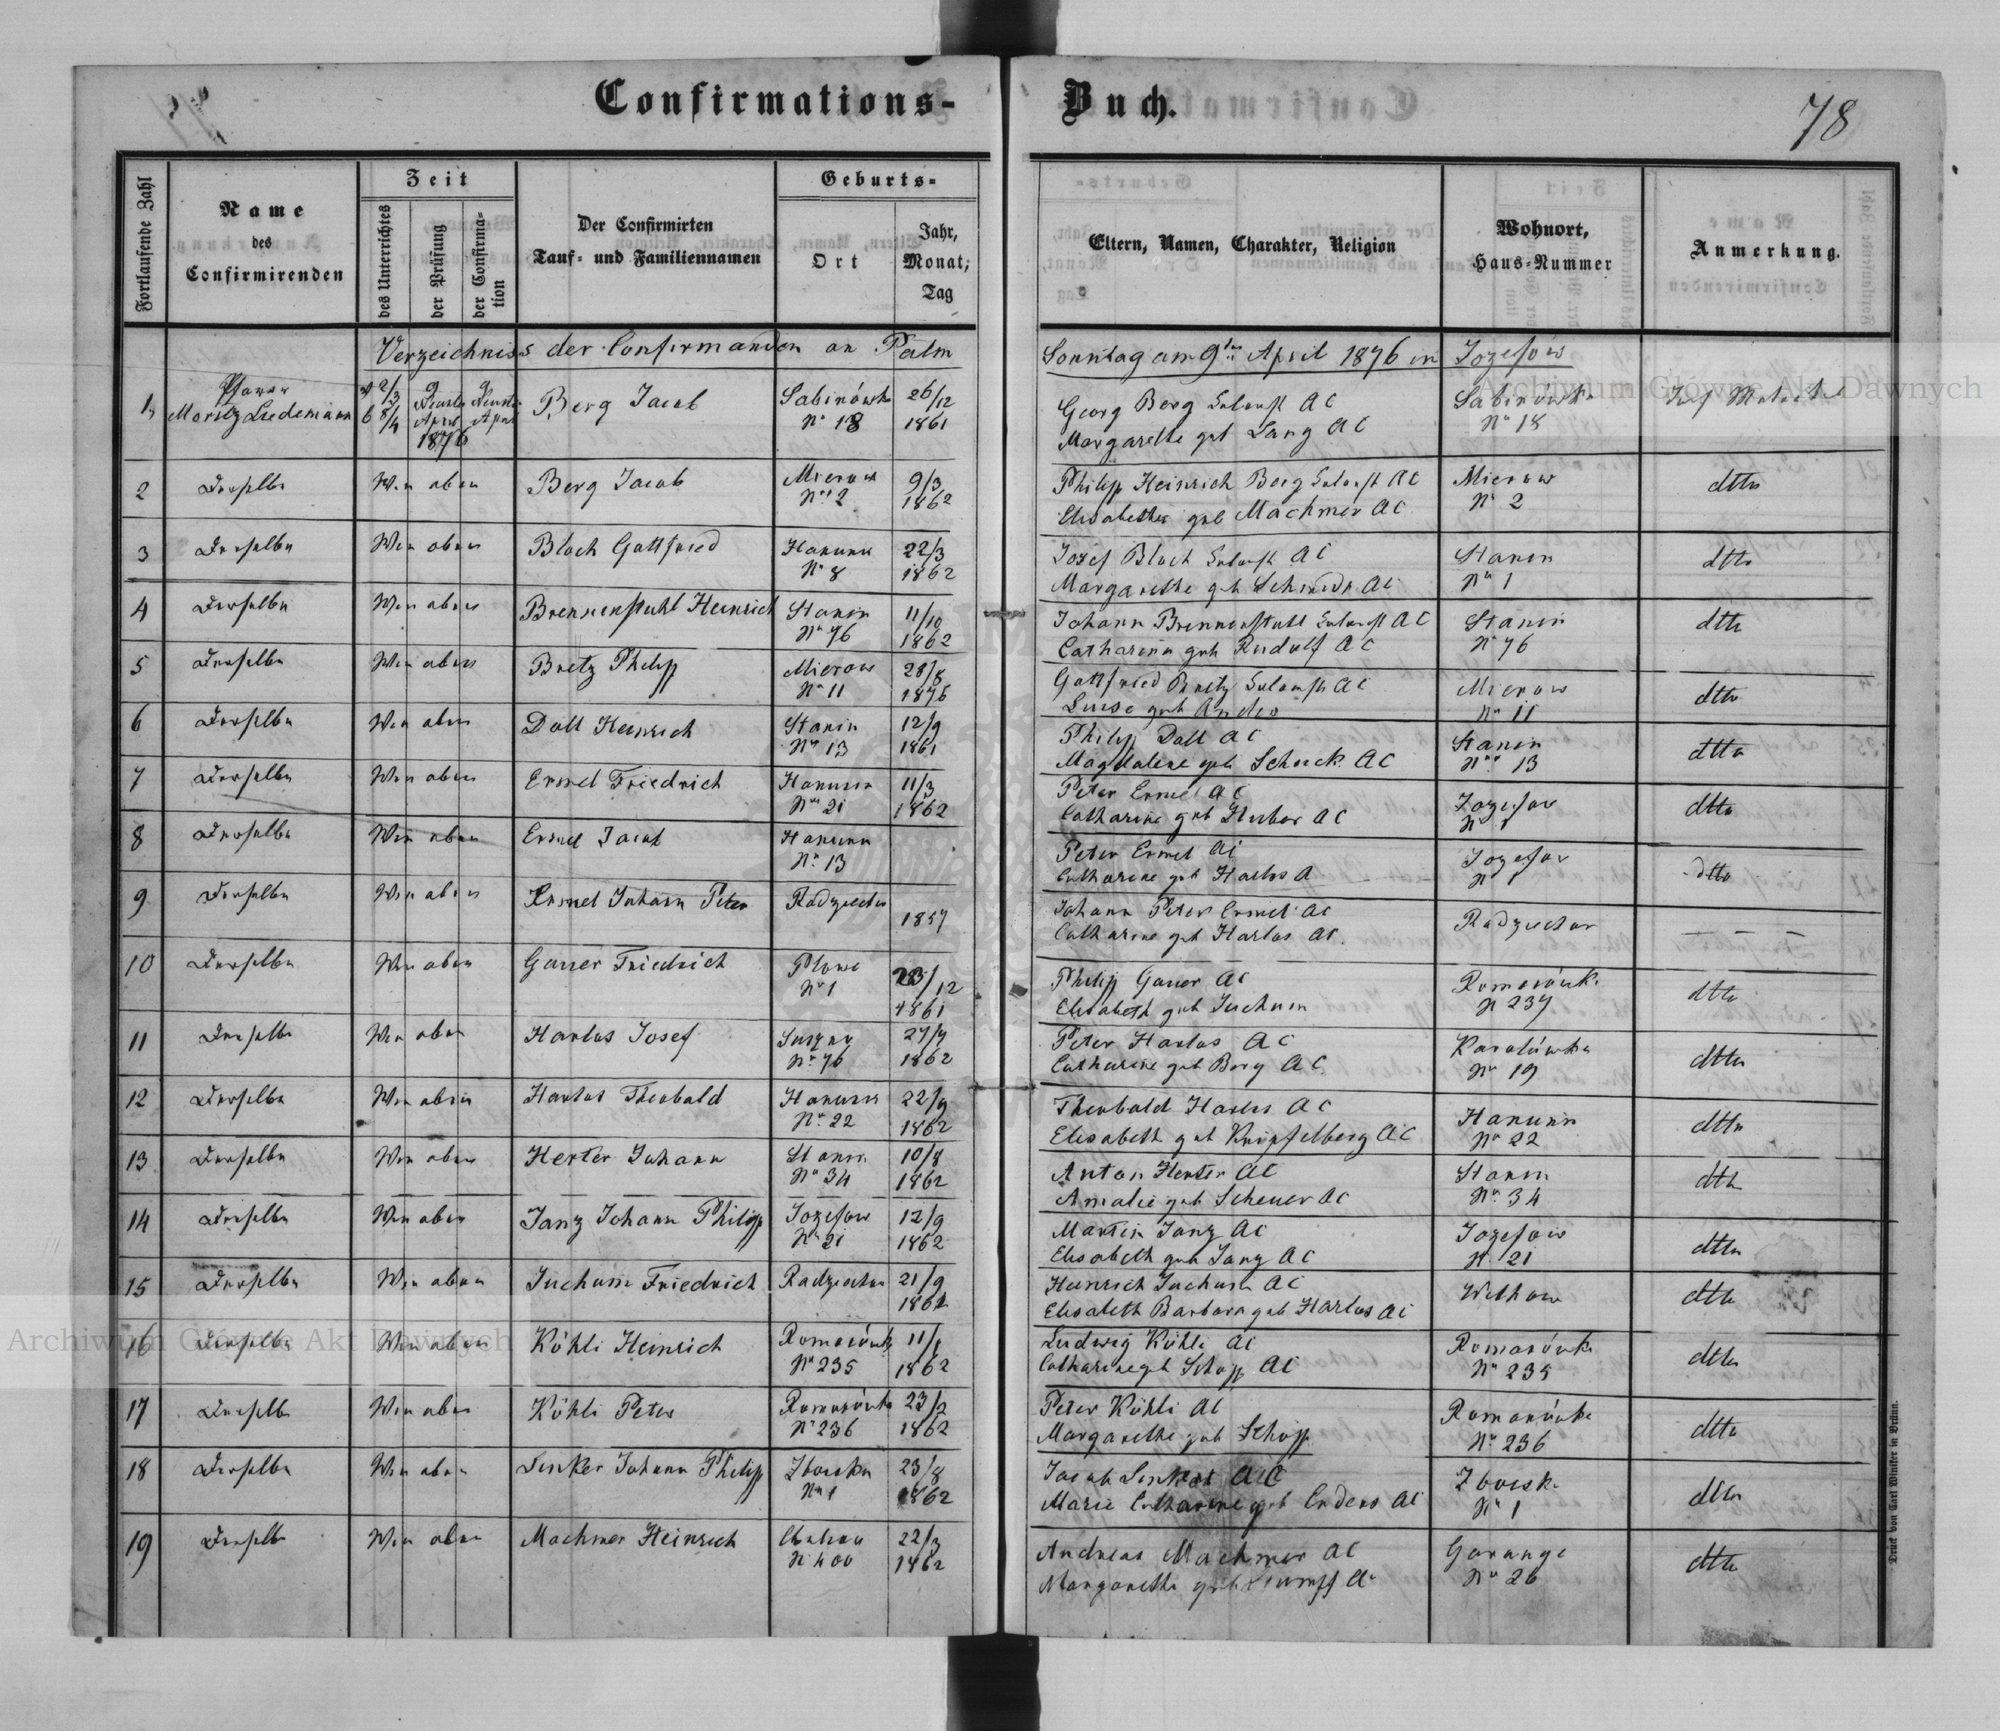 Confirmations-Buch.
78
Fortlaufende Zahl
Name
des
Confirmirenden
Zeit
des Unterrichtes
der Prüfung
der Confirma-
tion
Der Confirmirten
Tauf- und Familiennamen
Geburts-
Ort
Jahr,
Monat,
Tag
Eltern, Namen, Charakter, Religion
Wohnort,
Haus-Nummer
Anmerkung.
Verzeichniss der Confirmanden an Palm
Sonntag am 9ten April 1876 in Jozefow
1. Pfarrer Berg Jacob Sabinówka 26/12 Georg Berg AC Sabinówka
Moritz Luedemann 1876 No 18 1861 Margarethe geb Lang AC No 18
2 Derselbe Wie oben Berg Jacob Mierow 9/3 Philip Heinrich Berg AC Mierow dtto
No 2 1862 Elisabetha geb Machmer AC No 2
3 Derselbe Wie oben Bloch Gottfried Hanunin 22/3 Jozef Bloch AC Stanin dtto
No 8 1862 Margarethe geb Schmidt AC No 1
4 Derselbe Wie oben Brennenstuhl Heinrich Stanin 11/10 Johann Brennenstuhl AC Stanin dtto
No 76 1862 Catharina geb Rudolf AC No 76
5 Derselbe Wie oben Bretz Philip Mierow 28/8 Gottfried Bretz AC Mierow dtto
No 11 1876 Luise geb No 11
6 Derselbe Wie oben Doll Heinrich Stanin 12/9 Philip Doll AC Stanin dtto
No 13 1861 Magdalene geb Schuck AC No 13
7 Derselbe Wie oben Ermel Friedrich Hanunin 11/3 Peter Ermel AC Jozefow dtto
No 21 1862 Catharine geb Huber AC No 1
8 Derselbe Wie oben Ermel Jacob Hanunin Peter Ermel AC Jozefow dtto
No 13 Catharine geb Harlos A No 1
9 Derselbe Wie oben Ermel Johann Peter Radziechow Johann Peter Ermel AC Radziechow
1857 Catharine geb Harlos AC.
10 Derselbe Wie oben Gauer Friedrich 23/12 Philip Gauer AC Romanówka dtto
No 1 1861 Elisabeth geb Juchum No 237
11 Derselbe Wie oben Harlos Josef 1862 Peter Harlos AC Karolówka dtto
No 76 Catharine geb Berg AC No 19
12 Derselbe Wie oben Harlos Theobald Hanunin 22/9 Theobald Harlos AC Hanunin dtto
No 22 1862 Elisabeth geb Knipfelberg AC No 22
13 Derselbe Wie oben Herter Johann Stanin 10/8 Anton Herter AC Stanin dtto
No 34 1862 Amalie geb Scheuer AC No 34
14 Derselbe Wie oben Janz Johann Philipp Jozefow 12/9 Martin Janz AC Jozefow dtto
No 21 1862 Elisabeth geb Janz AC No 21
15 Derselbe Wie oben Juchum Friedrich Radziechow 21/9 Heinrich Juchum AC dtto
1862 Elisabeth Barbara geb Harlos AC
16 Derselbe Wie oben Köhli Heinrich Romanówka 11/1 Ludwig Köhli AC Romanówka dtto
No 235 1862 Catharine geb Schopp AC No 235
17 Derselbe Wie oben Köhli Peter Romanówka 23/2 Peter Köhli AC Romanówka dtto
No 236 1862 Margarethe geb Schopp No 236
18 Derselbe Wie oben Linker Johann Philipp 23/8 Jacob Linker AC dtto
No 1 1862 Marie Catharine geb Enders AC No 1
19 Derselbe Wie oben Machmer Heinrich 22/3 Andreas Machmer AC dtto
No 400 1862 Margarethe geb No 26
Druck von Carl Winiker in Brünn.
Archiwum Główne Akt Dawnych
Archiwum Główne Akt Dawnych